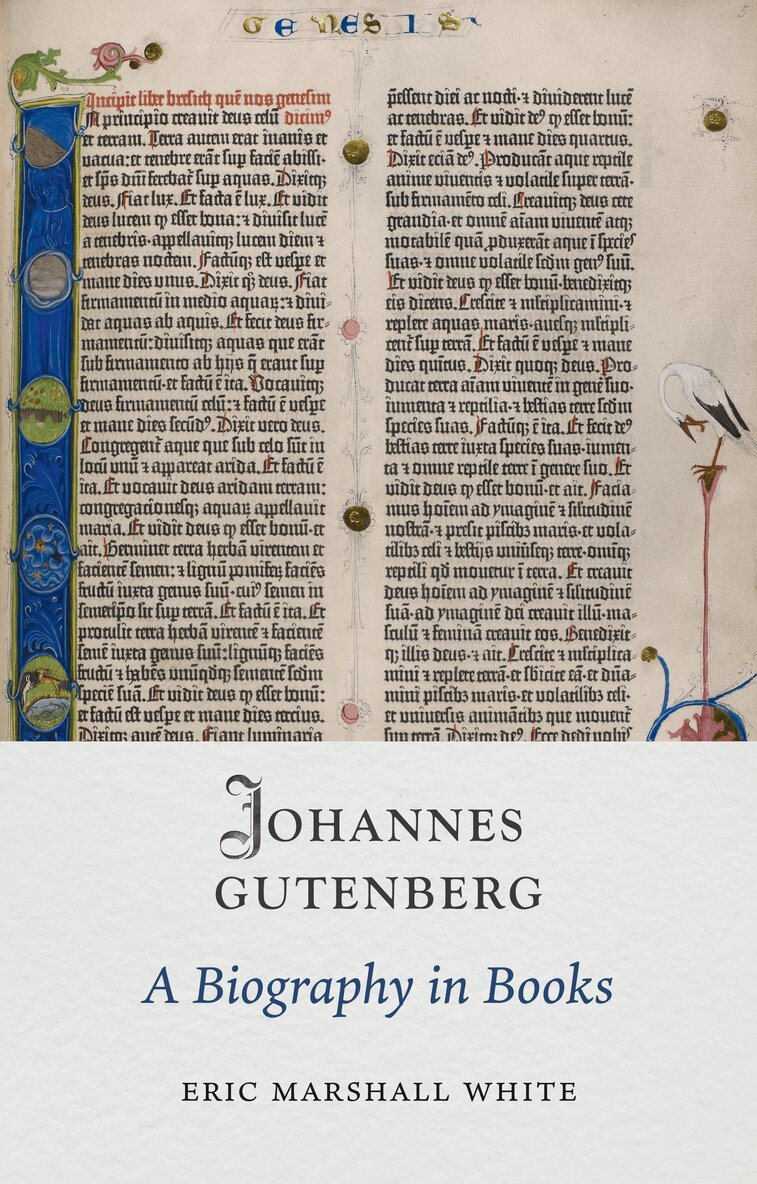 GENESIS
5
Incipit liber bresich quē nos genesim
In principio creauit deus celū dicimꝰ
et terram. Terra autem erat inanis et
vacua: et tenebre erāt sup faciē abissi·
et sp̄s dn̄i ferebat᷑ sup aquas. Dixitqꝫ
deus. Fiat lux. Et facta ē lux. Et vidit
deus lucem ꝙ esset bona: ⁊ diuisit lucē
a tenebris·appellauitqꝫ lucem diem ⁊
tenebras noctem. Factūqꝫ est vespe et
mane dies vnus. Dixit qꝫ deus. Fiat
firmamentū in medio aquaꝝ: ⁊ diui-
dat aquas ab aquis. Et fecit deus fir-
mamentū: diuisitqꝫ aquas que erāt
sub firmamento ab hijs q̄ erant sup
firmamentū·et factū ē ita. Vocauitqꝫ
deus firmamentū celū: ⁊ factū ē vespe
et mane dies secūdꝰ. Dixit vero deus.
Congregent᷑ aque que sub celo sūt in
locū vnū ⁊ appareat arida. Et factū ē
ita. Et vocauit deus aridam terram:
congregacionesqꝫ aquaꝝ appellauit
maria. Et vidit deus ꝙ esset bonū·et
ait. Germinet terra herbā virentem et
facientē semen: ⁊ lignū pomifeꝝ faciēs
fructū iuxta genus suū·cuiꝰ semen in
semetipo sit sup terrā. Et factū ē ita. Et
protulit terra herbā virentē ⁊ facientē
semē iuxta genus suū: lignūqꝫ faciēs
fructū ⁊ habēs vnūqdqꝫ sementē scdm
speciē suā. Et vidit deus ꝙ esset bonū:
et factū est vespe et mane dies tercius.
Dixitqꝫ autē deus. Fiant luminaria
p̄essent diei ac nocti· ⁊ diuiderent lucē
ac tenebras. Et vidit deꝰ ꝙ esset bonū:
et factū ē vespe ⁊ mane dies quartus.
Dixit eciā deꝰ. Producāt aque reptile
anime viuentis ⁊ volatile super terrā·
sub firmamēto celi. Creauitqꝫ deus cete
grandia·et omnē aīam viuentē atqꝫ
motabilē quā pduxerāt aque ī species
suas· ⁊ omne volatile scdm genꝰ suū.
Et vidit deus ꝙ esset bonū·benedixitqꝫ
eis dicens. Crescite ⁊ ml̄tiplicamini· ⁊
replete aquas maris·auesqꝫ ml̄tipli-
cent᷑ sup terrā. Et factū ē vespe ⁊ mane
dies quītus. Dixit quoqꝫ deus. Pro-
ducat terra aīam viuentē in genē suo·
iumenta ⁊ reptilia· ⁊ bestias terre scdm
species suas. Factūqꝫ ē ita. Et fecit deꝰ
bestias terre iuxta species suas·iumen-
ta ⁊ omne reptile terre ī genere suo. Et
vidit deus ꝙ esset bonū·et ait. Facia-
mus hoīem ad ymaginē ⁊ silitudinē
nostrā· ⁊ presit piscibꝫ maris·et vola-
tilibꝫ celi ⁊ bestijs vniuseqꝫ terre·omīqꝫ
reptili qd mouetur ī terra. Et creauit
deus hoīem ad ymaginē ⁊ silitudinē
suā·ad ymaginē dei creauit illū·ma-
sculū ⁊ feminā creauit eos. Benedixit-
qꝫ illis deus· ⁊ ait. Crescite ⁊ ml̄tiplica-
mini ⁊ replete terrā·et sbicite eā·et dn̄a-
mini piscibꝫ maris·et volatilibꝫ celi·
et vniuersis animātibꝫ que mouent᷑
sup terrā. Dixitqꝫ deꝰ. Ecce dedi vobis
JOHANNES
GUTENBERG
A Biography in Books
ERIC MARSHALL WHITE